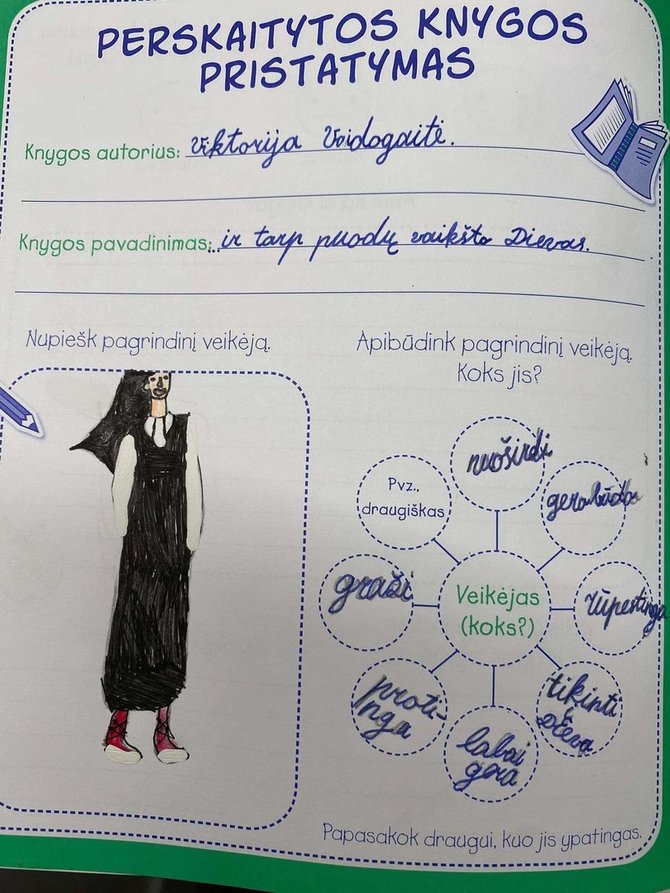 PERSKAITYTOS KNYGOS
PRISTATYMAS
Knygos autorius: Viktorija Voidogaitė.
Knygos pavadinimas: ir tarp puodų vaikšto Dievas.
Nupiešk pagrindinį veikėją.
Apibūdink pagrindinį veikėją.
Koks jis?
nuoširdi
Pvz.,
draugiškas
gerabūdos
graži
Veikėjas
(koks?)
rūpestinga
proti-
nga
labai
gera
tikinti
Papasakok draugui, kuo jis ypatingas.